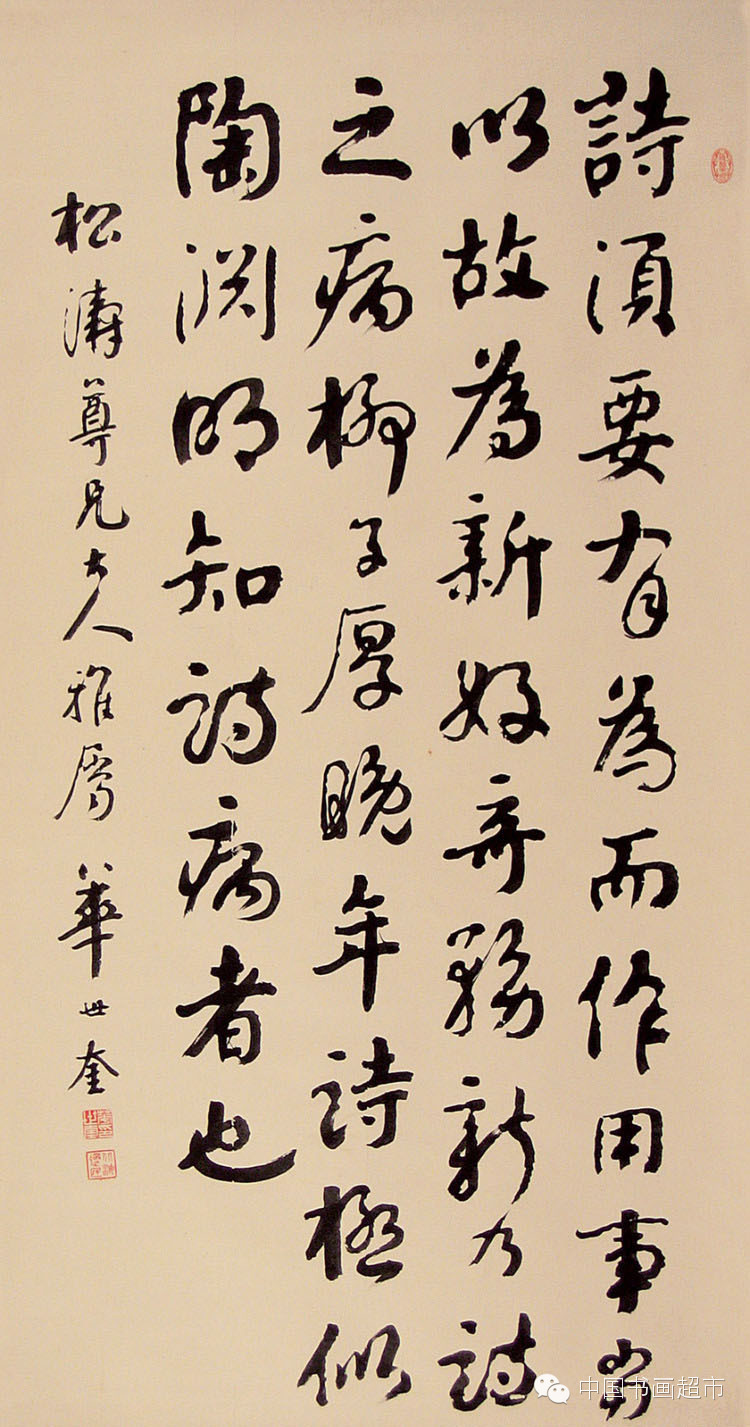 詩須要有為而作用事當
以故為新好奇務新乃詩
之病柳子厚晚年詩極似
陶淵明知詩病者也
松濤尊兄大人雅屬 華世奎
中国书画超市